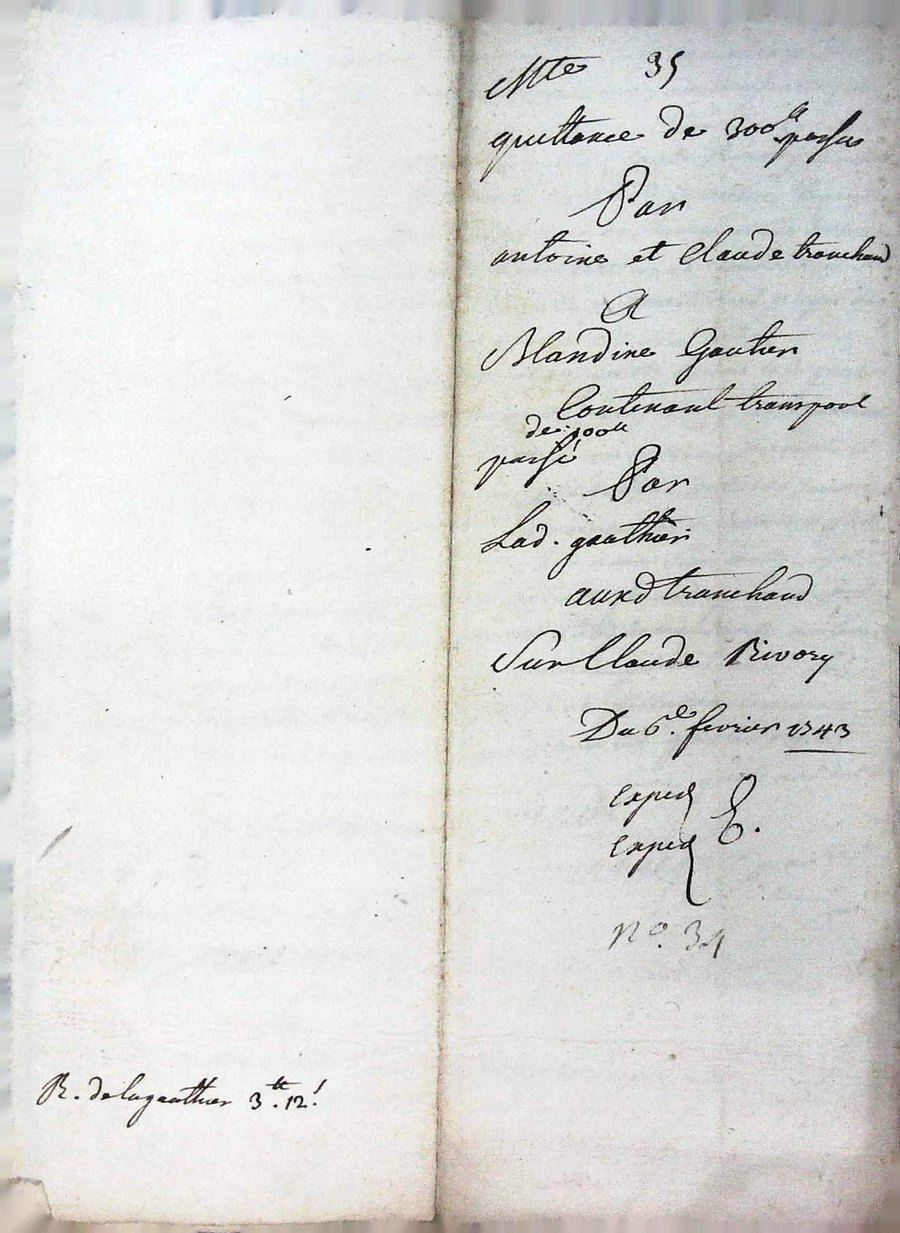 Mte 35
quittance de 300ll passée
Par
antoine et Claude tranchand
A
Blandine Gautier
Contenant transport
de 100ll
passé
Par
Lad. gauthier
auxd tranchand
Sur Claude Rivory
Du 6e. fevrier 1743
exped
exped
no. 34
R. de la gauthier 3tt. 12s